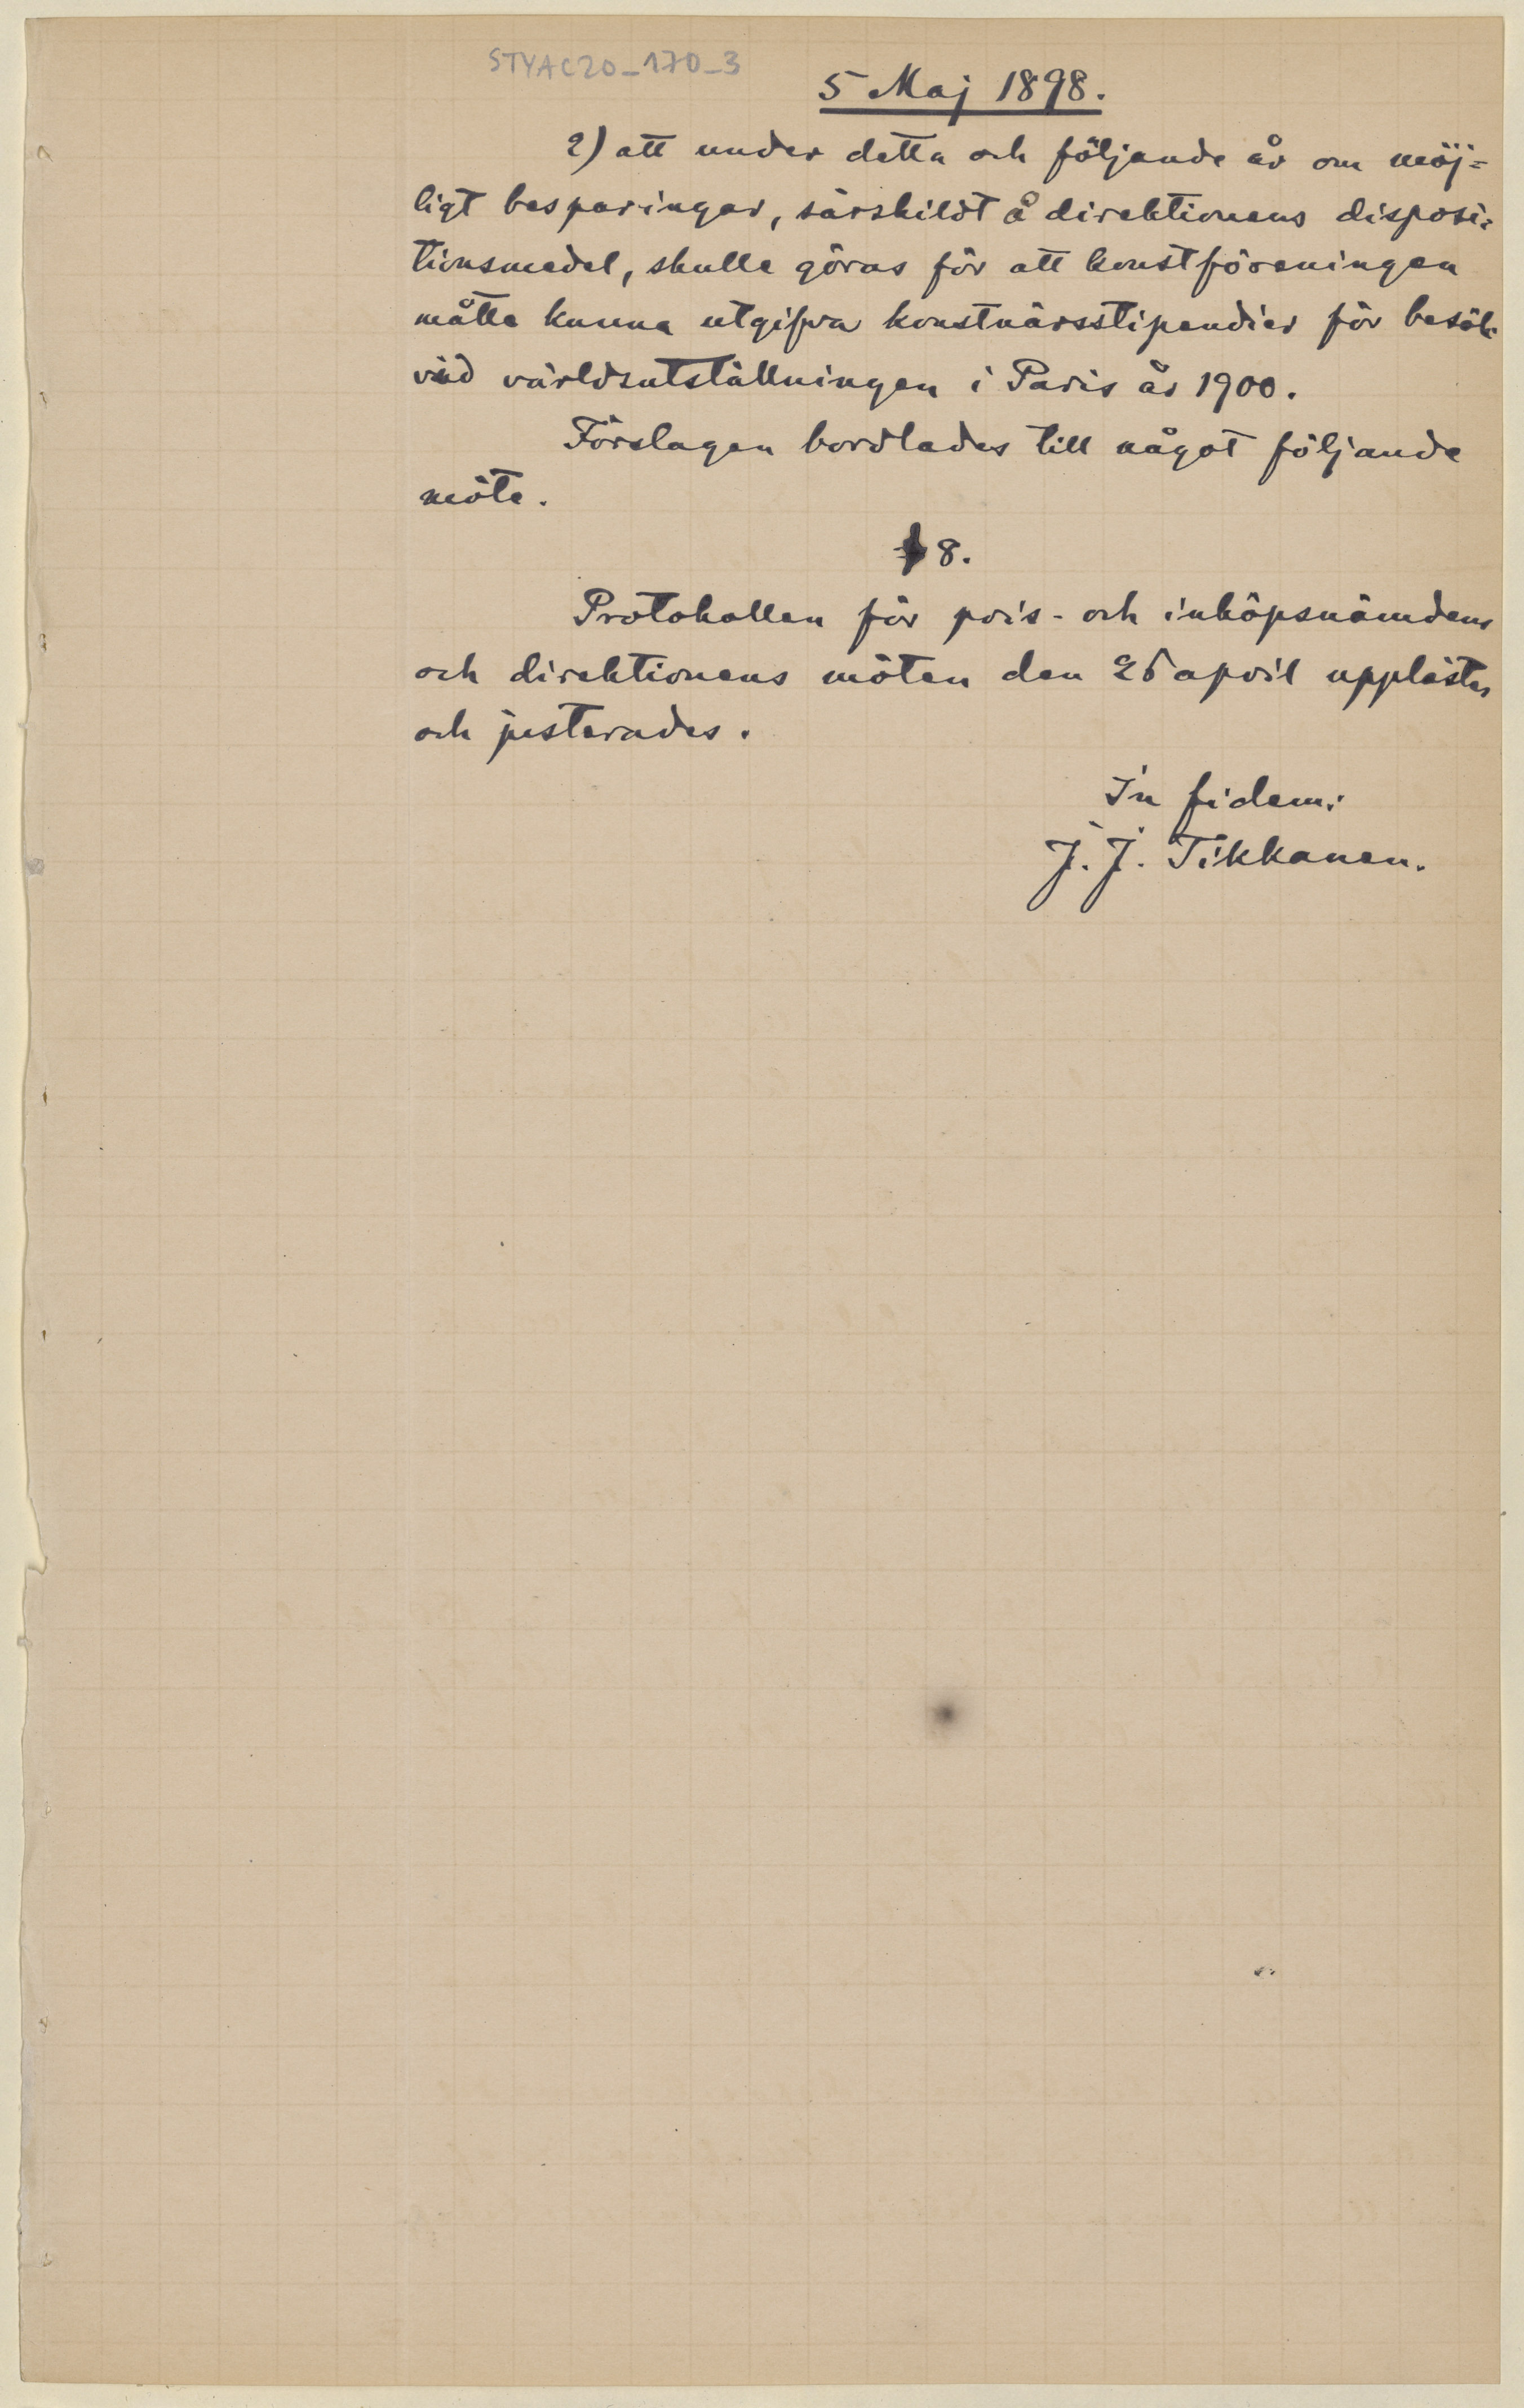 STYAC20_170_3
5 Maj 1898.
2) att under detta och följande år om möj=
ligt besparingar, särskildt å direktionens disposi=
tionsmedel, skulle göras för att konstföreningen
måtte kunna utgifva konstnärsstipendier för besök
vid världsutställningen i Paris år 1900.
Förslagen bordlades till något följande
möte.
§ 8.
Protokollen för pris- och inköpsnämdens
och direktionens möten den 26 april upplästes
och justerades.
In fidem:
J. J. Tikkanen.